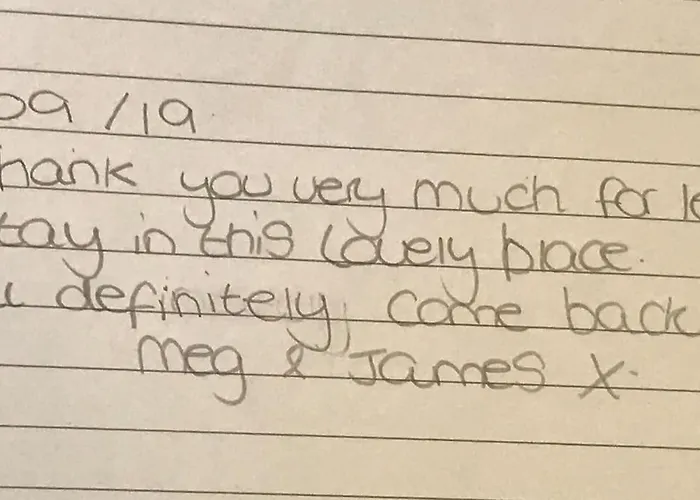 09/19
hank you very much for le
tay in this lovely place.
l definitely, come back
Meg & James x.